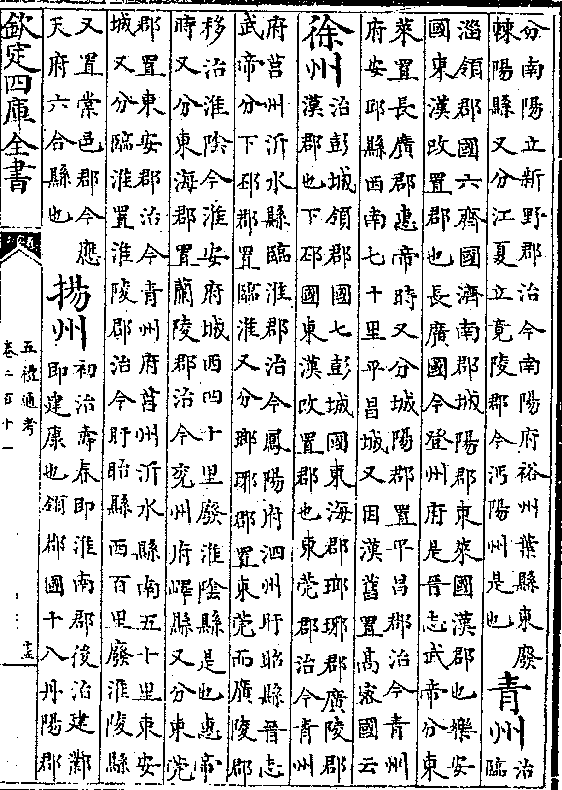 分南陽立新野郡治今南陽府裕州葉縣東廢
棘陽縣又分江夏立竟陵郡今沔陽州是也
青州
治
臨
淄領郡國六齊國濟南郡城陽郡東萊國漢郡也樂安
國東漢改置郡也長廣國今登州府是晉志武帝分東
萊置長廣郡惠帝時又分城陽郡置平昌郡治今青州
府安邱縣西南七十里平昌城又因漢舊置高密國云
徐州
治彭城領郡國七彭城國東海郡瑯琊郡廣陵郡
漢郡也下邳國東漢改置郡也東莞郡治今青州
府莒州沂水縣臨淮郡治今鳳陽府泗州盱眙縣晉志
武帝分下邳郡置臨淮又分瑯琊郡置東莞而廣陵郡
移治淮陰今淮安府城西四十里廢淮陰縣是也惠帝
時又分東海郡置蘭陵郡治今兖州府嶧縣又分東莞
郡置東安郡治今青州府莒州沂水縣南五十里東安
城又分臨淮置淮陵郡治今盱眙縣西百里廢淮陵縣
又置棠邑郡今應
天府六合縣也
揚州
初治壽春即淮南郡後治建鄴
即建康也領郡國十八丹陽郡
欽定四庫全書
五禮通考
卷二百十一